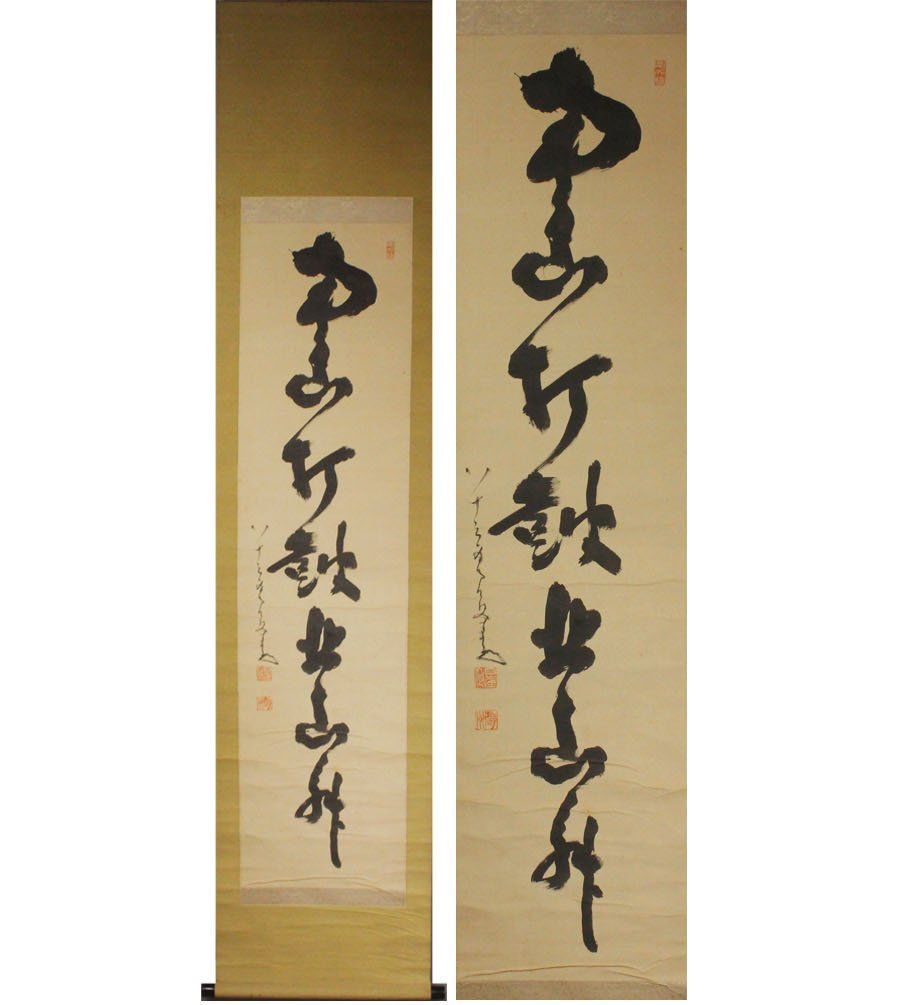 南山打鼓北山舞
南山打鼓北山舞